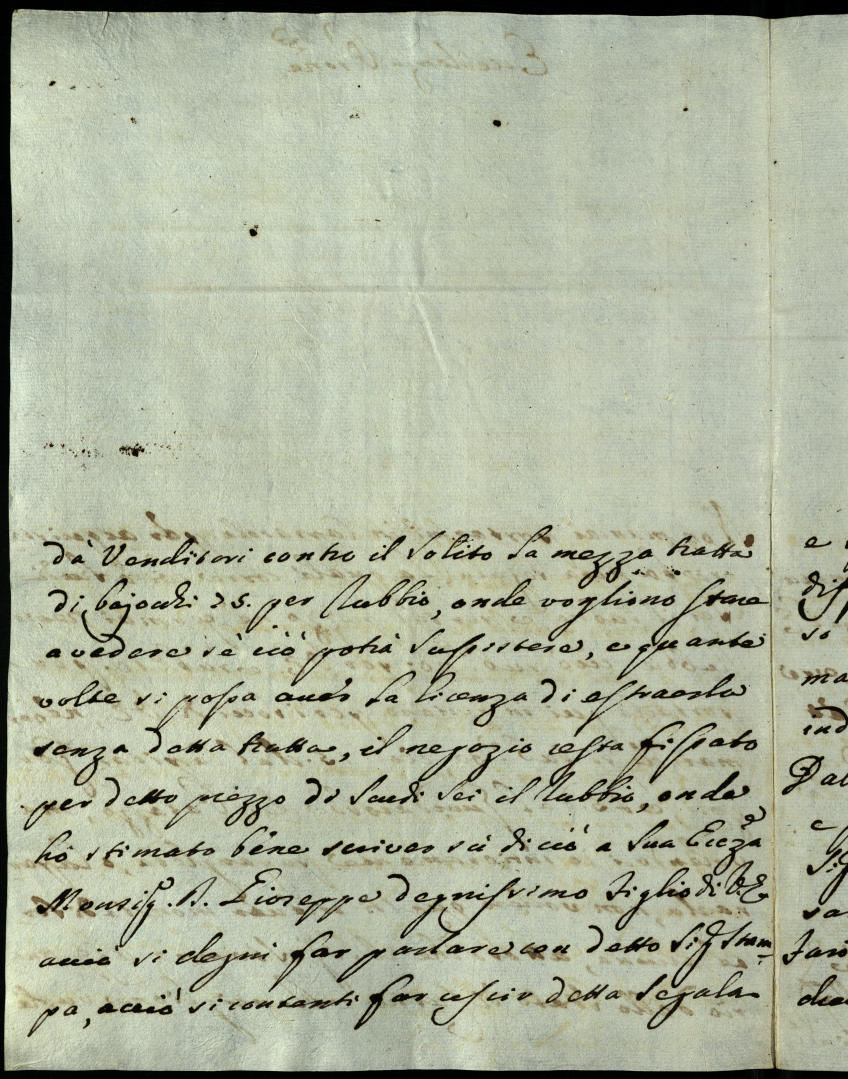 dà Venditori contro il solito la mezza tratta
di bajochi 25. per Rubbio, onde vogliono stare
a vedere sè ciò potrà sussistere, e quante
volte si possa aver la licenza di estraerla
senza detta tratta, il negozio resta fissato
per detto prezzo di Scudi Sei il Rubbio, onde
hò stimato bene scriver sù di ciò a Sua Ecczã
Monsig.r D. Gioseppe degnissimo Figlio di V. E.
acciò si degni far parlare con detto Sig.r Stam-
pa, acciò si contenti far uscir detta Segala
e
dis
so
ma
ind
e
Sig